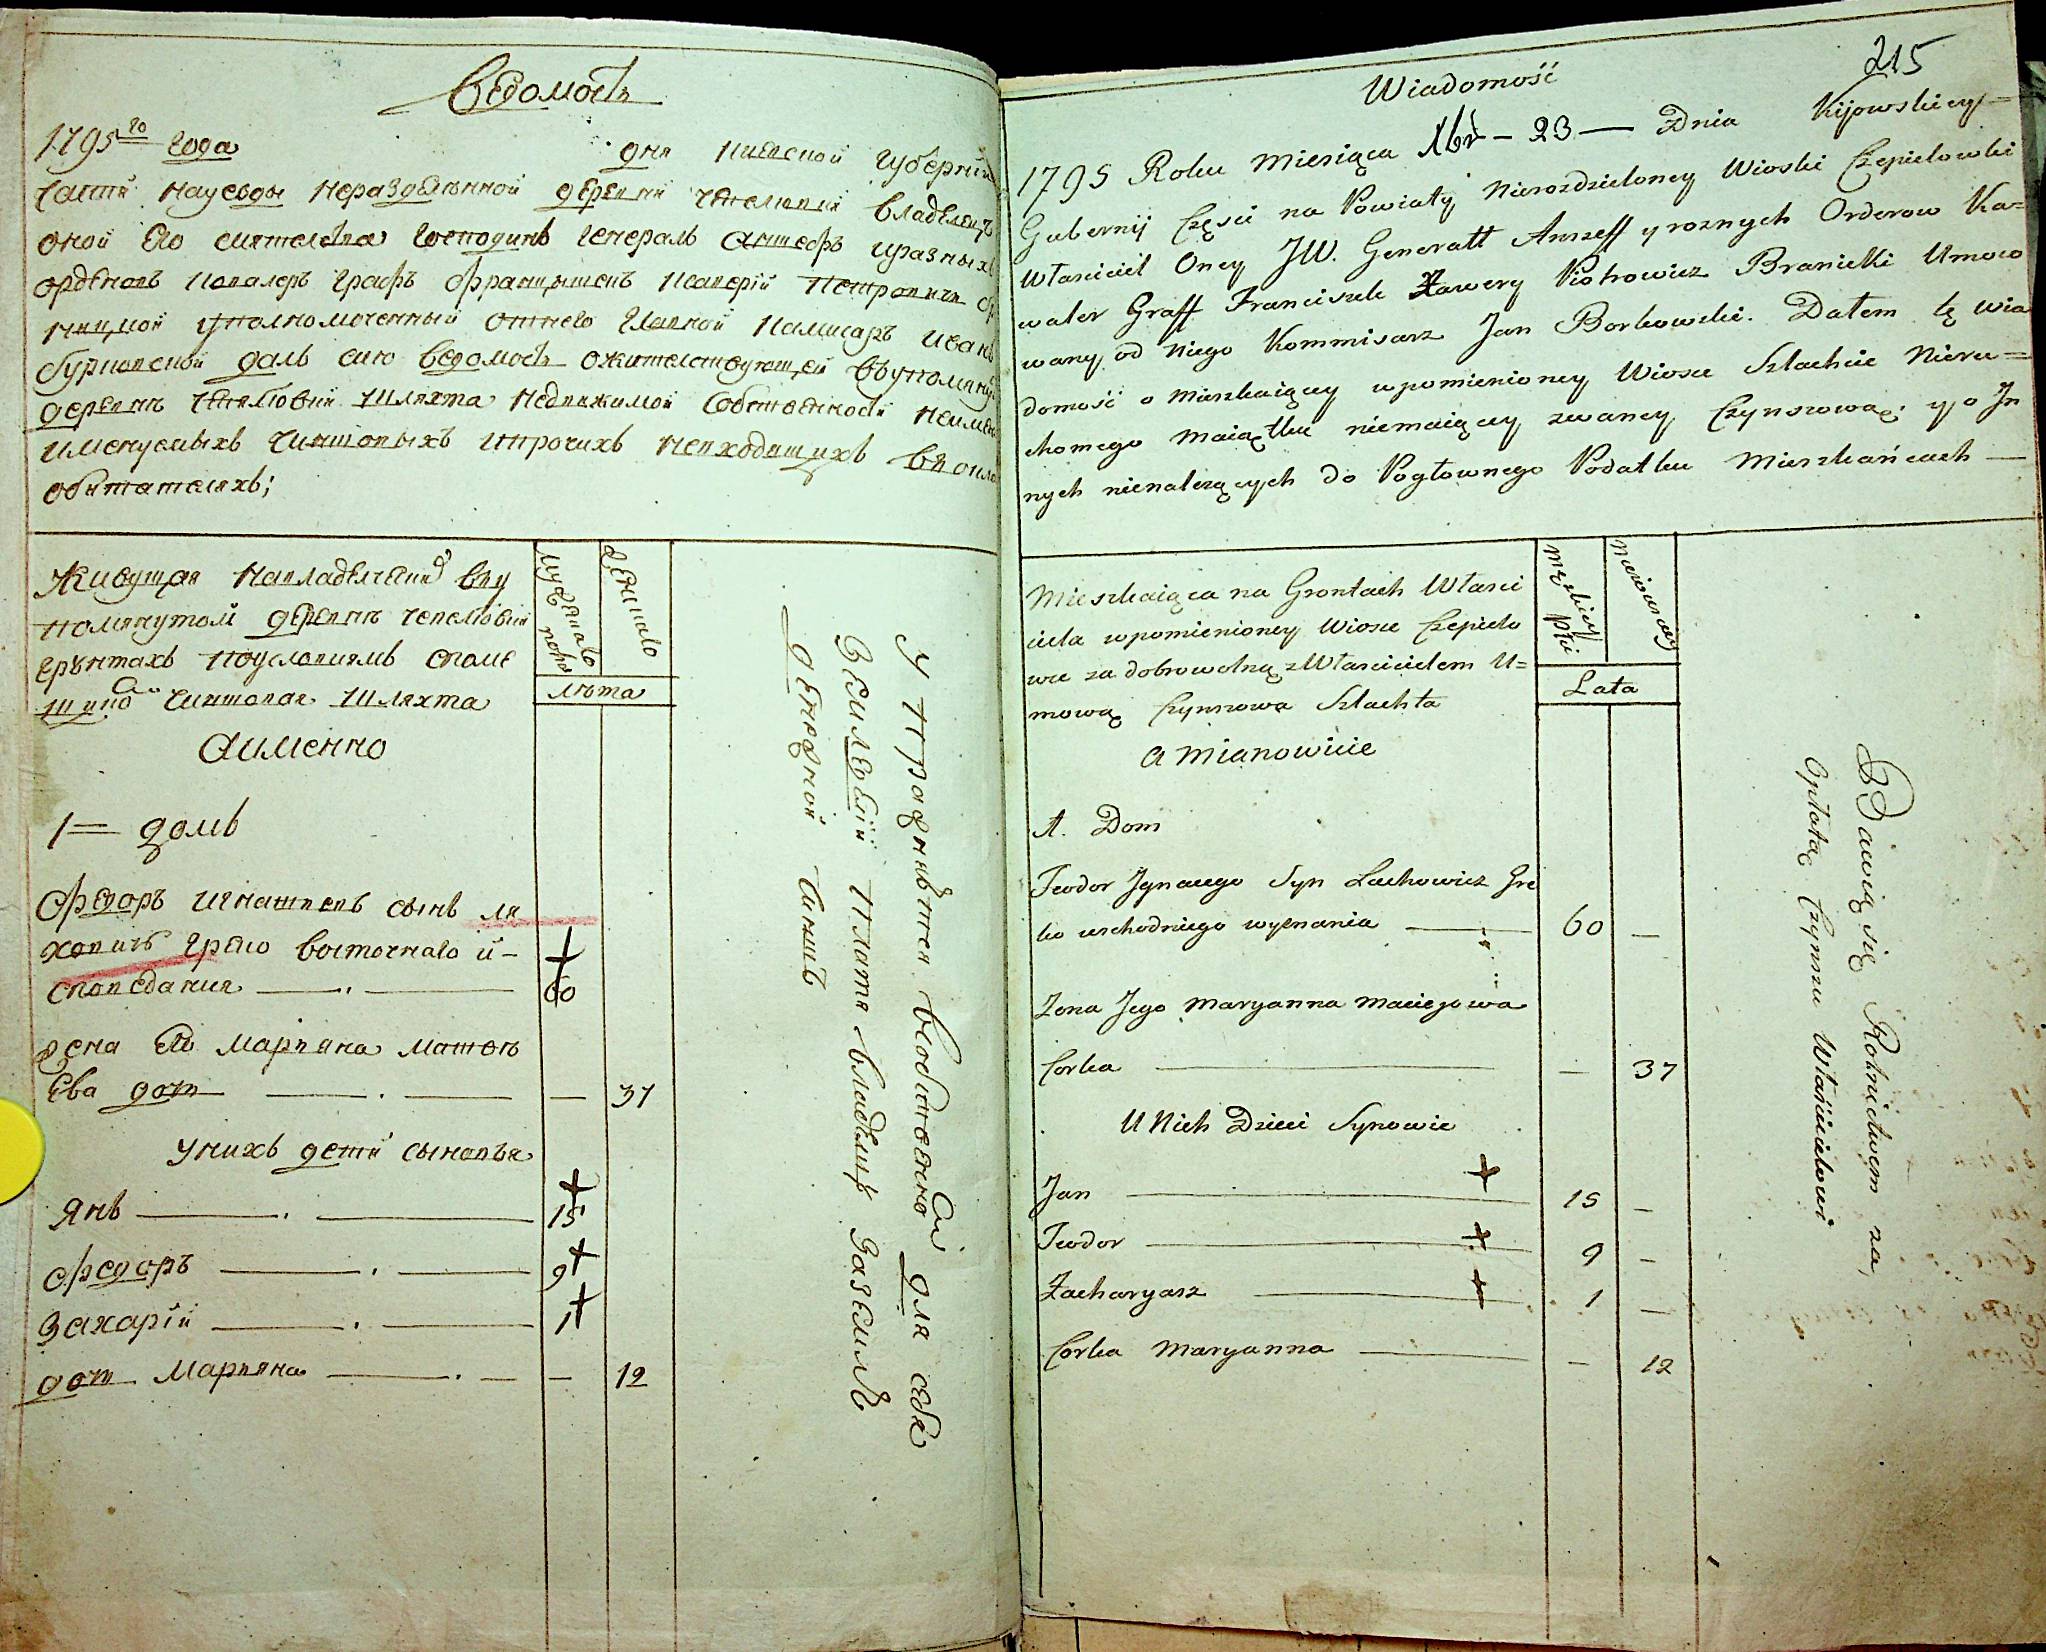 Ведомость
1795го Года дня Киевской Губернии
части науезды неразделенной деревни чепелювки владелецъ
оной Его сиятелства Господинъ Генералъ Аншефъ иразныхъ
орденовъ Кавалеръ Графъ Францышекъ Ксаверій Петровичъ
уполномоченный отнего Главной Комисаръ Иванъ
Бурковской далъ сию Ведомость ожителствующей
деревнѣ Чепелювки Шляхта недвижимой собственности
именуемыхъ чиншовыхъ ипрочихъ невходящихъ
обитателяхъ;
Живущая навладелческой вѣу
помянутой деревнѣ чепелювки
грунтахъ поусловиямъ
чиншовая шляхта
Аименно
мужескаго пола
женскаго
лѣта
1 домъ
Федоръ игнатиевъ сынъ ля
ховичъ греко восточнаго и-
споведания — 60
жена его Марияна матве
ева доч — — 37
унихъ дети сыновья
Янъ — 15
Федоръ — 9
Захарій — 1
доч Марияна — — 12
Упражняется вообственно для себя
Земледелій платя владелцу заземлю
денежной чиншъ
215
Wiadomość
1795 Roku Miesiąca Xbr - 23 — Dnia Kijowskiey=
Gubernij Części na Powiaty Nierozdzieloney Wioski Czepielowki
Własciciel Oney JW. Generałł Anszeff y roznych Orderow Ka=
waler Graff Franciszek Xawery Piotrowicz Branicki Umoco
wany od niego Kommisarz Jan Borkowski. Dałem tę wia
domość o mieszkaiącey wpomienioney Wiosce Szlachcie Nieru=
chomego maiątku niemaiącey zwaney Czynszową; y o In
nych nienależących do Pogłownego Podatku Mieszkańcach —
Mieszkaiąca na Grontach Własci
ciela wpomienioney Wiosce Czepielo
wce za dobrowolną z Włascicielem U=
mową Czynszowa Szlachta
A Mianowicie
męzkiey płci
niewiescey
Lata
1. Dom
Teodor Jgnacego Syn Lachowicz Gre
ko wschodniego wyznania — 60 —
Zona Jego Maryanna Maciejowa
Corka — — 37
U Nich Dzieci Synowie
Jan — 15 —
Teodor — 9 —
Zacharyasz — 1 —
Corka Maryanna — — 12
Bawią się Rolnictwem za
Opłatą Czynszu Włascicielowi